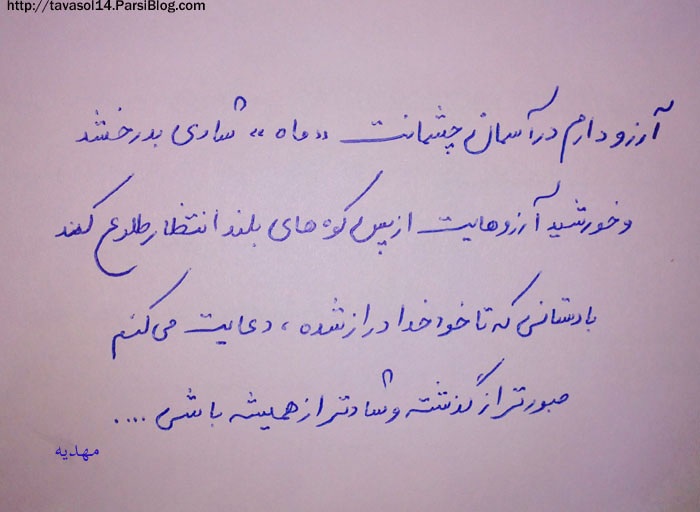 http://tavasol14.ParsiBlog.com
آرزو دارم در آسمان چشمانت «ماه» شادی بدرخشد
و خورشید آرزوهایت از پس کوه های بلند انتظار طلوع کند
با دستانی که تا خود خدا دراز شده، دعایت می کنم
صبورتر از گذشته و شادتر از همیشه باشی ....
مهدیه